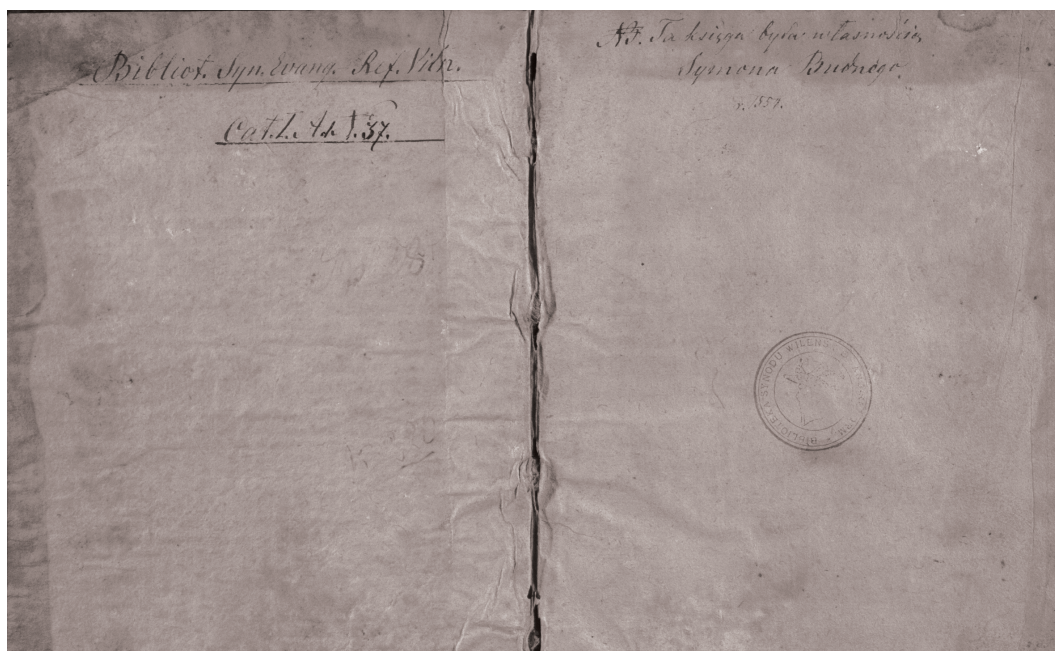 Bibliot. Syn. Evang. Ref. Viln.
Cat. L. A. de 37.
Ta księga była własnością
Symona Budnego
r. 155
BIBLIOTEKA SYNODU WILENS